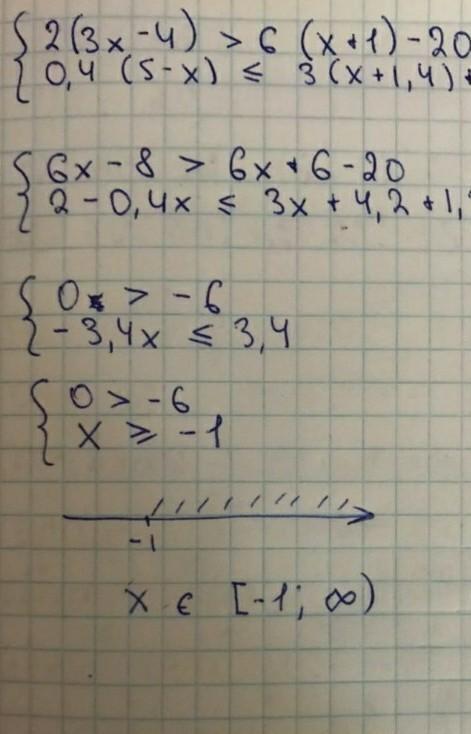 2(3x-4) > 6 (x+1)-20
0,4 (5-x) ≤ 3(x+1,4)+
6x-8 > 6x+6-20
2-0,4x ≤ 3x+4,2+1,
0 > -6
-3,4x ≤ 3,4
0 > -6
x ≥ -1
-1
x ∈ [-1; ∞)